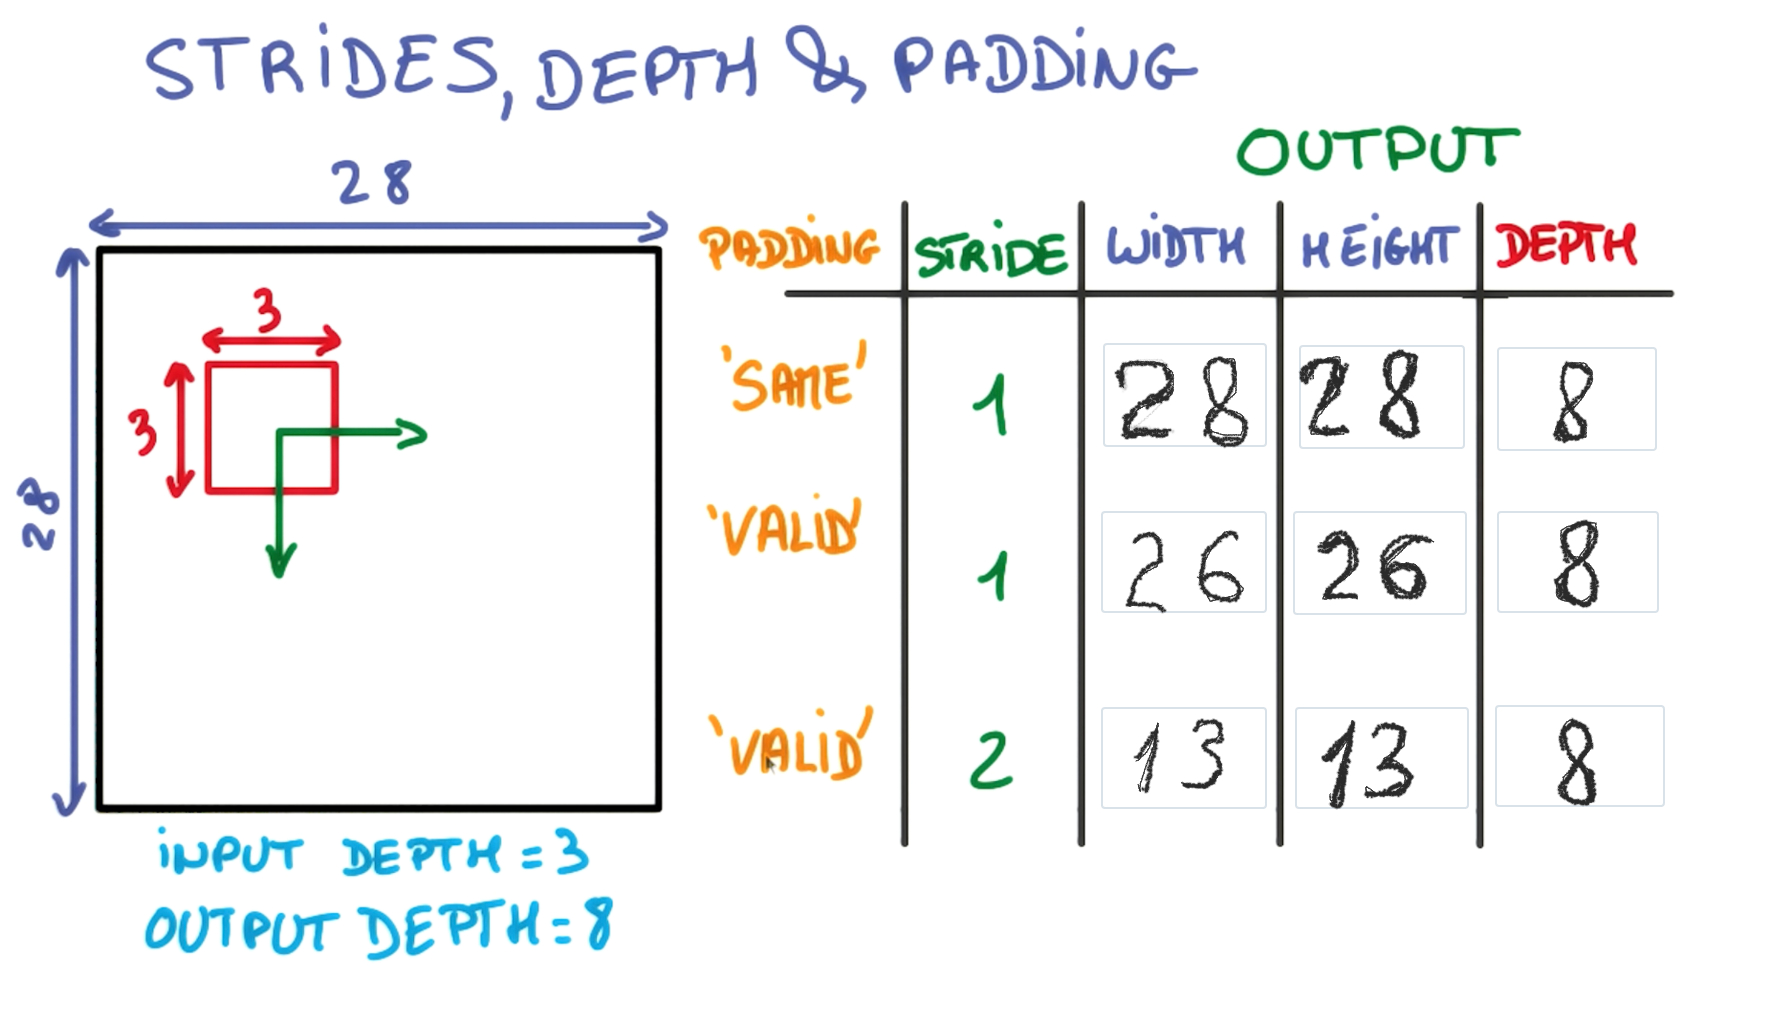 STRIDES, DEPTH & PADDING
28
28
3
3
INPUT DEPTH = 3
OUTPUT DEPTH = 8
OUTPUT
PADDING STRIDE WIDTH HEIGHT DEPTH
'SAME' 1 28 28 8
'VALID' 1 26 26 8
'VALID' 2 13 13 8